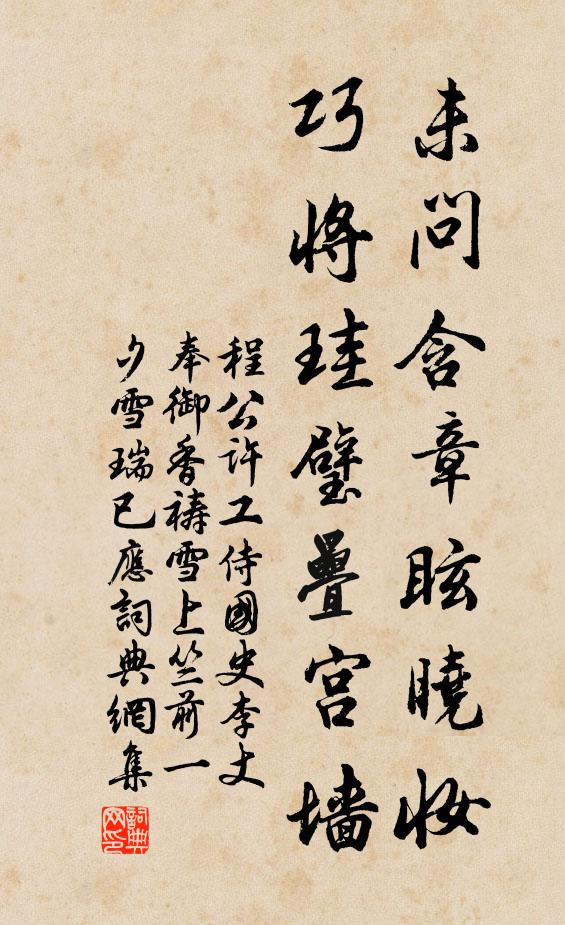 未问含章眩曉妆
巧将珪璧疊宫墙
程公许工侍國史李丈
奉御香禱雪上竺前一
夕雪瑞已應詞典網集
詞典
网印